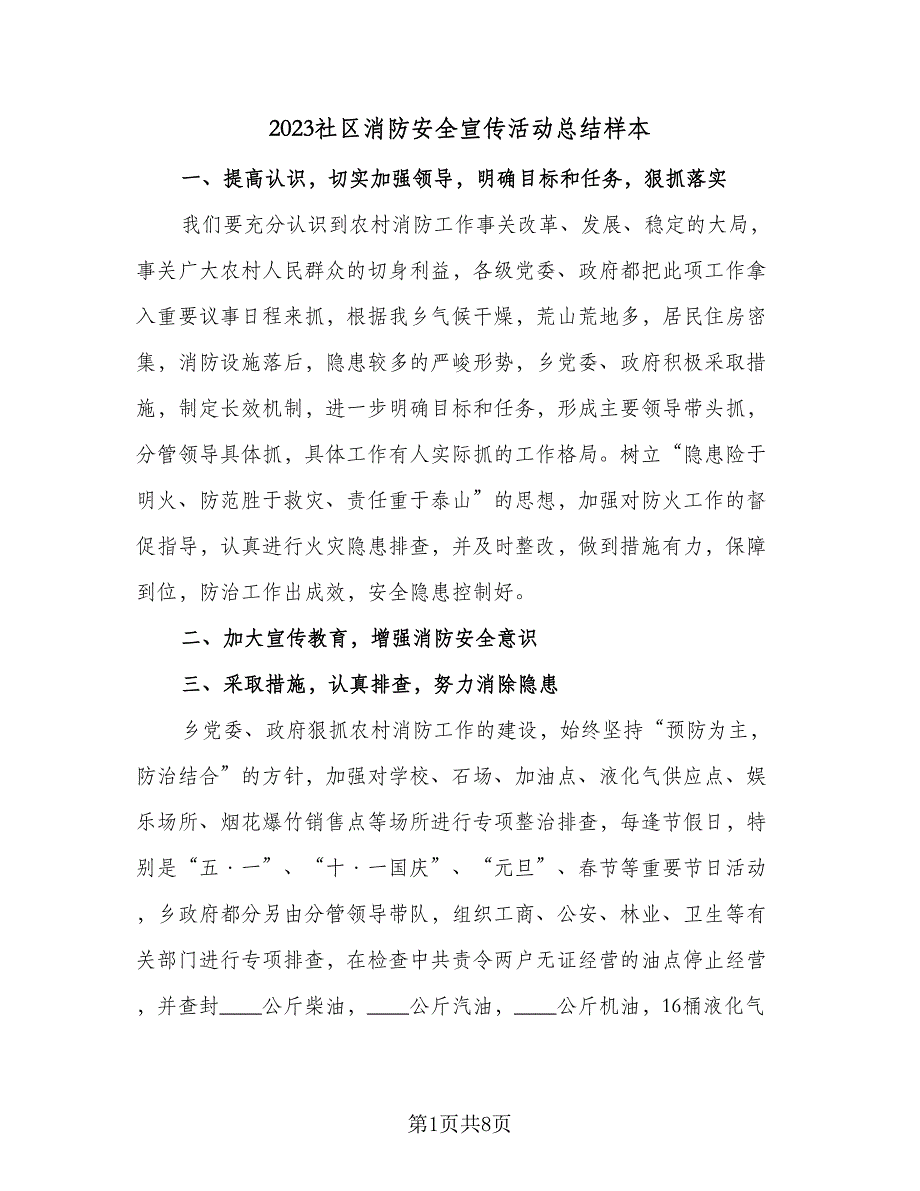 2023社区消防安全宣传活动总结样本
一、提高认识，切实加强领导，明确目标和任务，狠抓落实
我们要充分认识到农村消防工作事关改革、发展、稳定的大局，
事关广大农村人民群众的切身利益，各级党委、政府都把此项工作拿
入重要议事日程来抓，根据我乡气候干燥，荒山荒地多，居民住房密
集，消防设施落后，隐患较多的严峻形势，乡党委、政府积极采取措
施，制定长效机制，进一步明确目标和任务，形成主要领导带头抓，
分管领导具体抓，具体工作有人实际抓的工作格局。树立“隐患险于
明火、防范胜于救灾、责任重于泰山”的思想，加强对防火工作的督
促指导，认真进行火灾隐患排查，并及时整改，做到措施有力，保障
到位，防治工作出成效，安全隐患控制好。
二、加大宣传教育，增强消防安全意识
三、采取措施，认真排查，努力消除隐患
乡党委、政府狠抓农村消防工作的建设，始终坚持“预防为主，
防治结合”的方针，加强对学校、石场、加油点、液化气供应点、娱
乐场所、烟花爆竹销售点等场所进行专项整治排查，每逢节假日，特
别是“五·一”、“十·一国庆”、“元旦”、春节等重要节日活动
，乡政府都分另由分管领导带队，组织工商、公安、林业、卫生等有
关部门进行专项排查，在检查中共责令两户无证经营的油点停止经营
，并查封____公斤柴油，____公斤汽油，____公斤机油，16桶液化气
第1页共8页